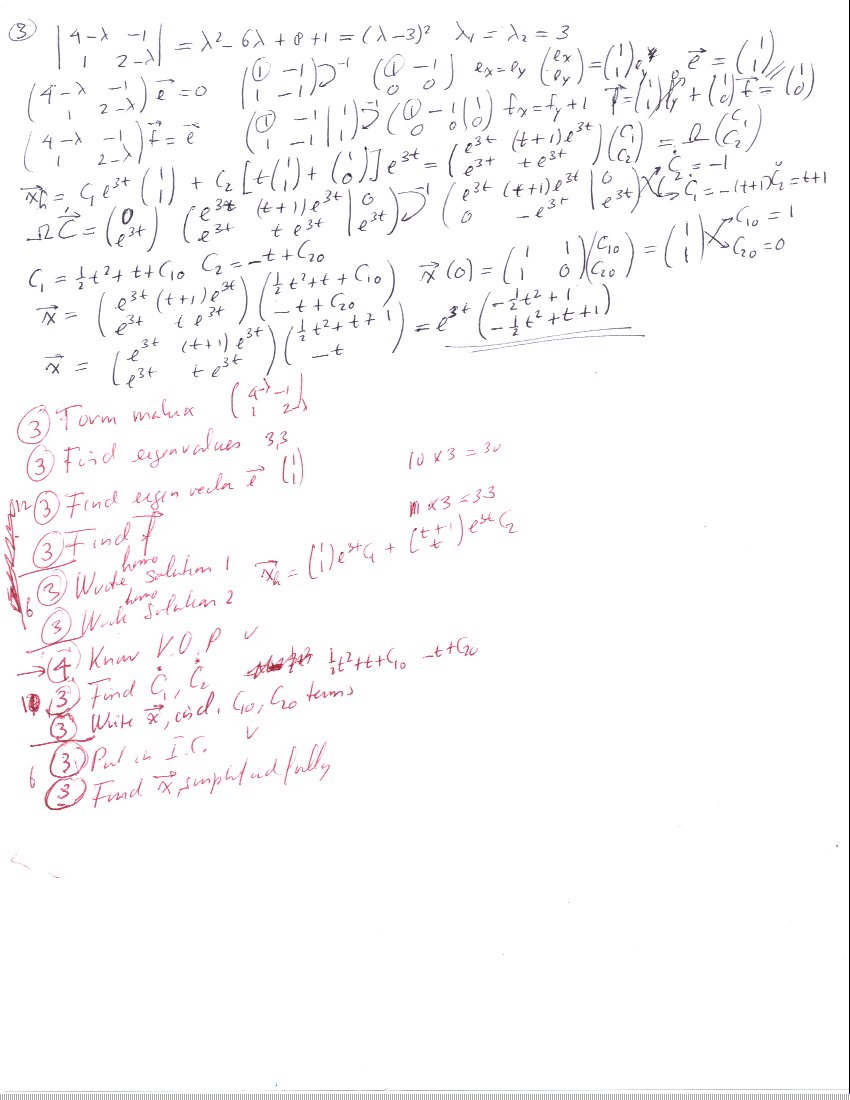 ③ | 4-λ -1 ; 1 2-λ | = λ² - 6λ + 8 + 1 = (λ-3)² λ₁ = λ₂ = 3
( 4-λ -1 ; 1 2-λ ) e⃗ = 0 ( ① -1 ; 1 -1 )⤸-1 ( ① -1 ; 0 0 ) eₓ = e_y ( eₓ ; e_y ) = ( 1 ; 1 ) e_y e⃗ = ( 1 ; 1 )
( 4-λ -1 ; 1 2-λ ) f⃗ = e⃗ ( ① -1 | 1 ; 1 -1 | 1 )⤸-1 ( ① -1 | 1 ; 0 0 | 0 ) fₓ = f_y + 1 f⃗ = ( 1 ; 1 ) f_y + ( 1 ; 0 ) f⃗ = ( 1 ; 0 )
x⃗ₕ = C₁ e^{3t} ( 1 ; 1 ) + C₂ [ t ( 1 ; 1 ) + ( 1 ; 0 ) ] e^{3t} = ( e^{3t} (t+1)e^{3t} ; e^{3t} t e^{3t} ) ( C₁ ; C₂ ) = Ω ( C₁ ; C₂ )
Ω Ċ⃗ = ( 0 ; e^{3t} ) ( e^{3t} (t+1)e^{3t} | 0 ; e^{3t} t e^{3t} | e^{3t} )⤸-1 ( e^{3t} (t+1)e^{3t} | 0 ; 0 -e^{3t} | e^{3t} ) Ċ₂ = -1 Ċ₁ = -(t+1)Ċ₂ = t+1
C₁ = ½t² + t + C₁₀ C₂ = -t + C₂₀ x⃗(0) = ( 1 1 ; 1 0 ) ( C₁₀ ; C₂₀ ) = ( 1 ; 1 ) C₁₀ = 1 C₂₀ = 0
x⃗ = ( e^{3t} (t+1)e^{3t} ; e^{3t} t e^{3t} ) ( ½t² + t + C₁₀ ; -t + C₂₀ )
x⃗ = ( e^{3t} (t+1)e^{3t} ; e^{3t} t e^{3t} ) ( ½t² + t + 1 ; -t ) = e^{3t} ( -½t² + 1 ; -½t² + t + 1 )
③ Form matrix ( 4-λ -1 ; 1 2-λ )
③ Find eigenvalues 3,3
10 x 3 = 30
12 ③ Find eigenvector e⃗ ( 1 ; 1 )
11 x 3 = 33
③ Find f⃗
③ Write homo solution 1 x⃗ₕ = ( 1 ; 1 ) e^{3t} C₁ + ( t+1 ; t ) e^{3t} C₂
6 ③ Write homo solution 2
→ ④ Know V.O.P ✓
10 ③ Find Ċ₁, Ċ₂ ½t² + t + C₁₀ -t + C₂₀
③ Write x⃗, incl. C₁₀, C₂₀ terms
③ Put in I.C. ✓
6 ③ Find x⃗, simplified fully